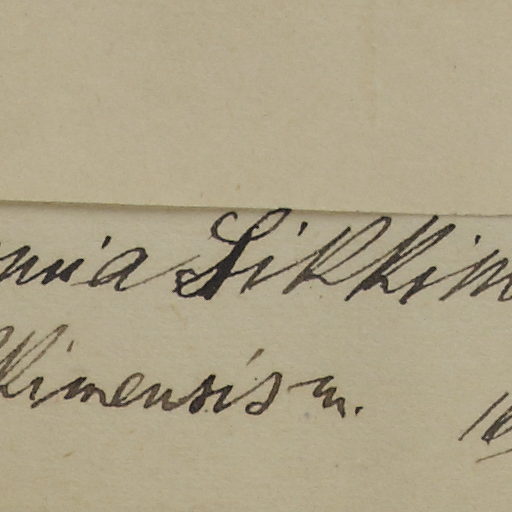 nnia Sikkim
kimensis m.